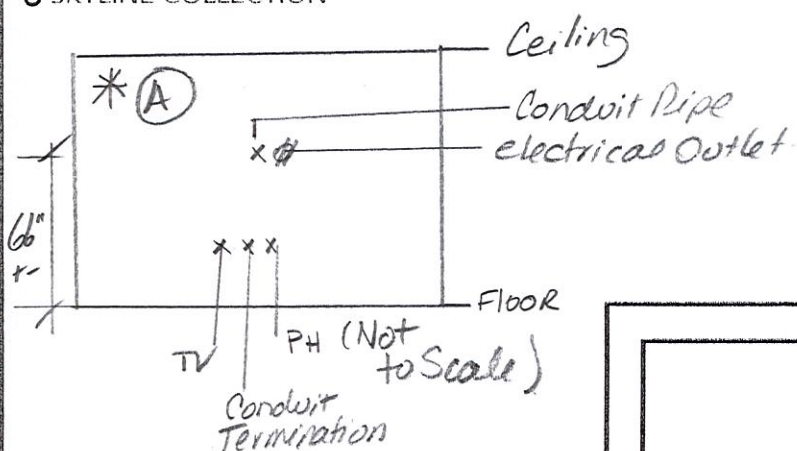 SKYLINE COLLECTION
Ceiling
* A
Conduit Pipe
electrical Outlet
66"
+-
FLOOR
TV
PH (Not
to Scale)
Conduit
Termination